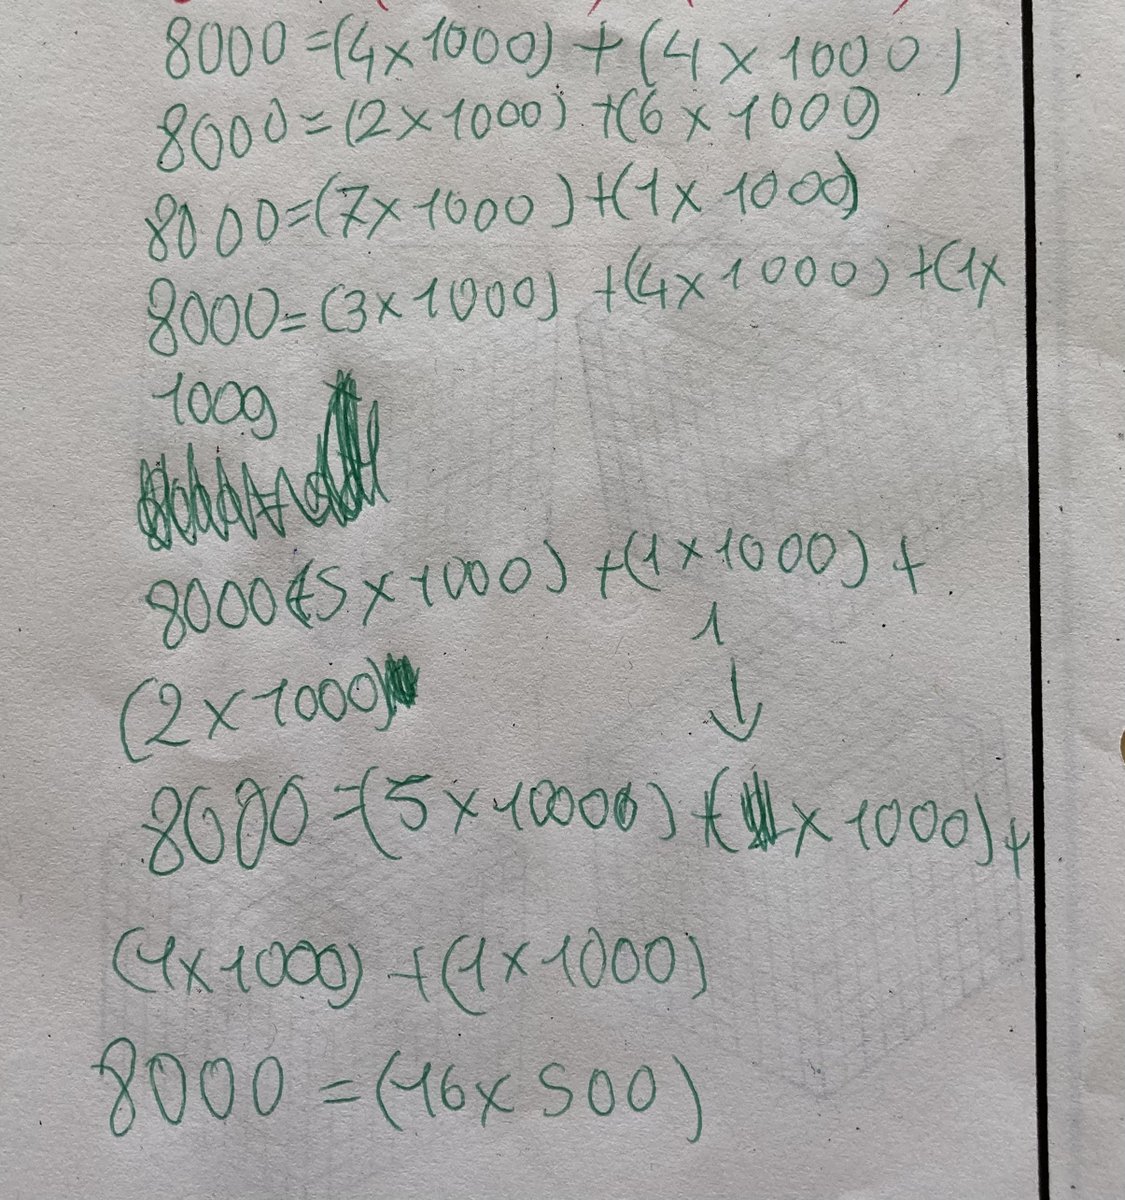 8000=(4x1000)+(4x1000)
8000=(2x1000)+(6x1000)
8000=(7x1000)+(1x1000)
8000=(3x1000)+(4x1000)+(1x
1000)
8000=(5x1000)+(1x1000)+
1
(2x1000)
↓
8000=(5x10000)+( x1000)+
(1x1000)+(1x1000)
8000=(16x500)